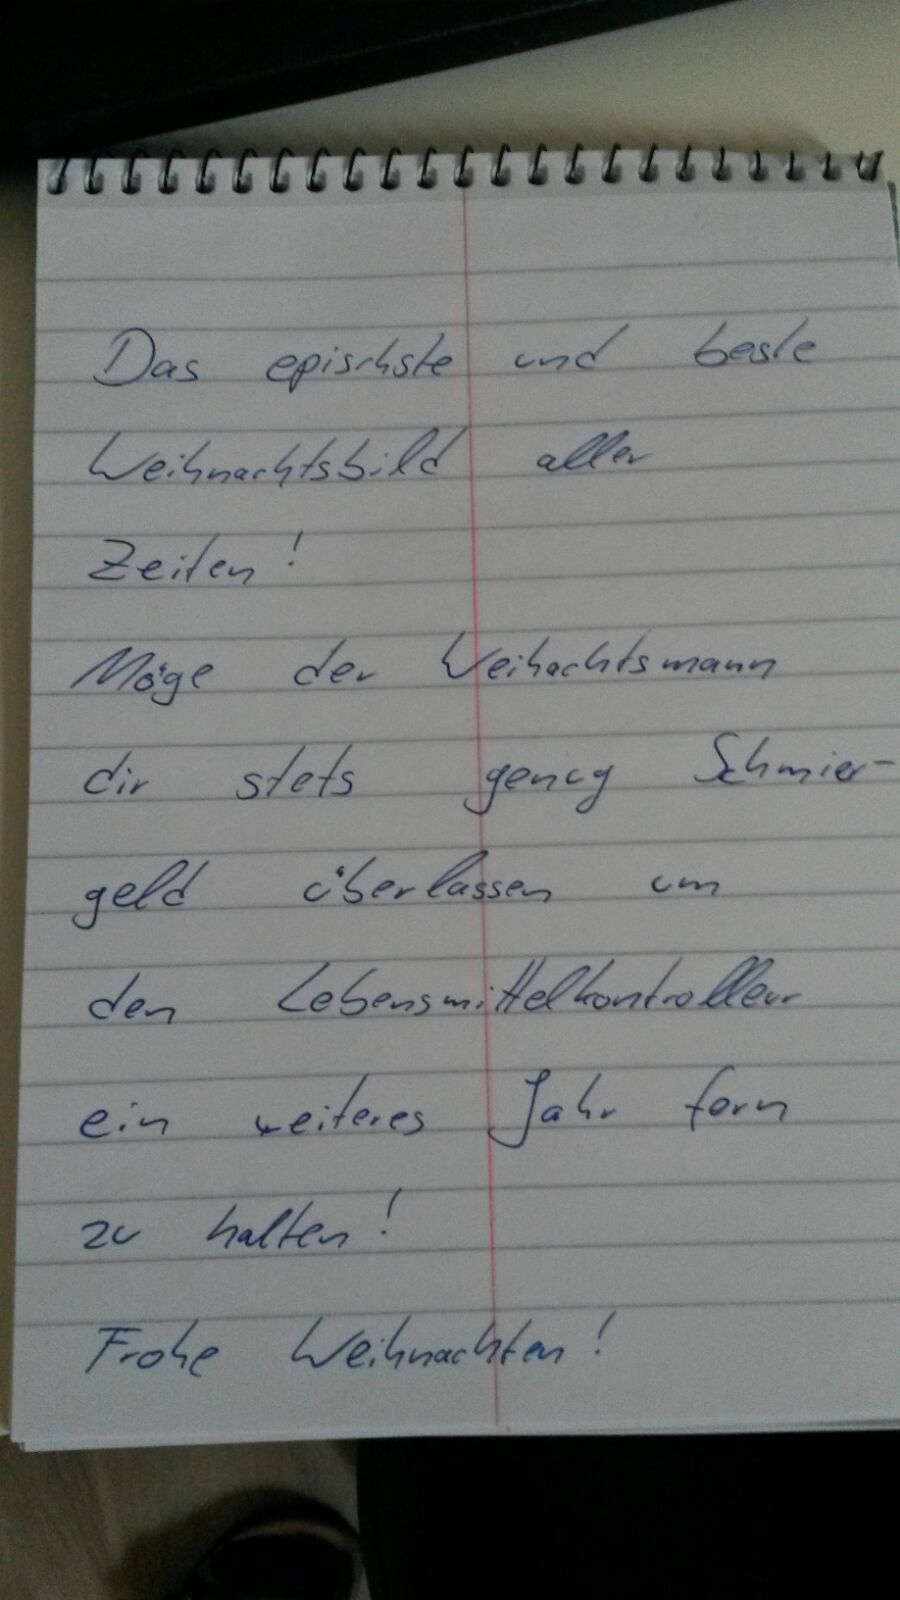 Das epischste und beste
Weihnachtsbild aller
Zeiten!
Möge der Weihachtsmann
dir stets genug Schmier-
geld überlassen um
den Lebensmittelkontrolleur
ein weiteres Jahr fern
zu halten!
Frohe Weihnachten!